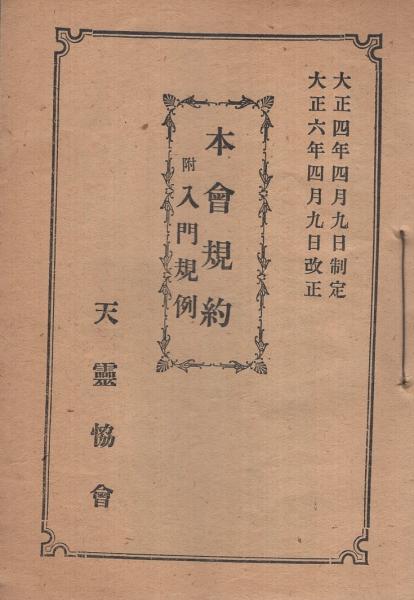 大正四年四月九日制定
大正六年四月九日改正
本會規約
附入門規例
天靈恊會